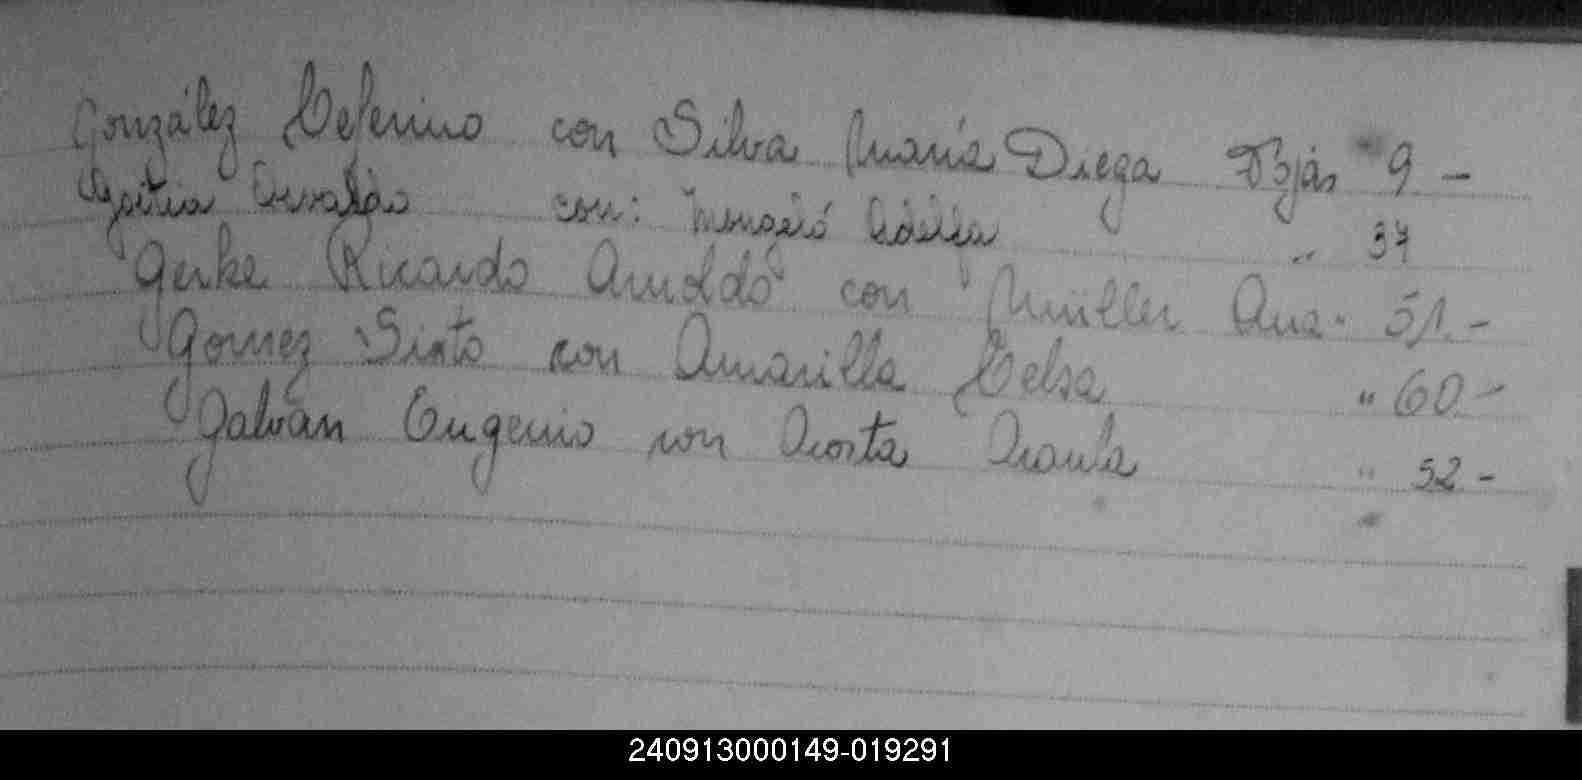 González Ceferino con Silva María Diega Fojás 9 -
Goitia Osvaldo con: Mongeló Adelfa " 37
Gerke Ricardo Arnoldo con Müller Ana " 51.-
Gomez Sixto con Amarilla Celsa " 60.-
Galván Eugenio con Acosta " 52 -
240913000149-019291